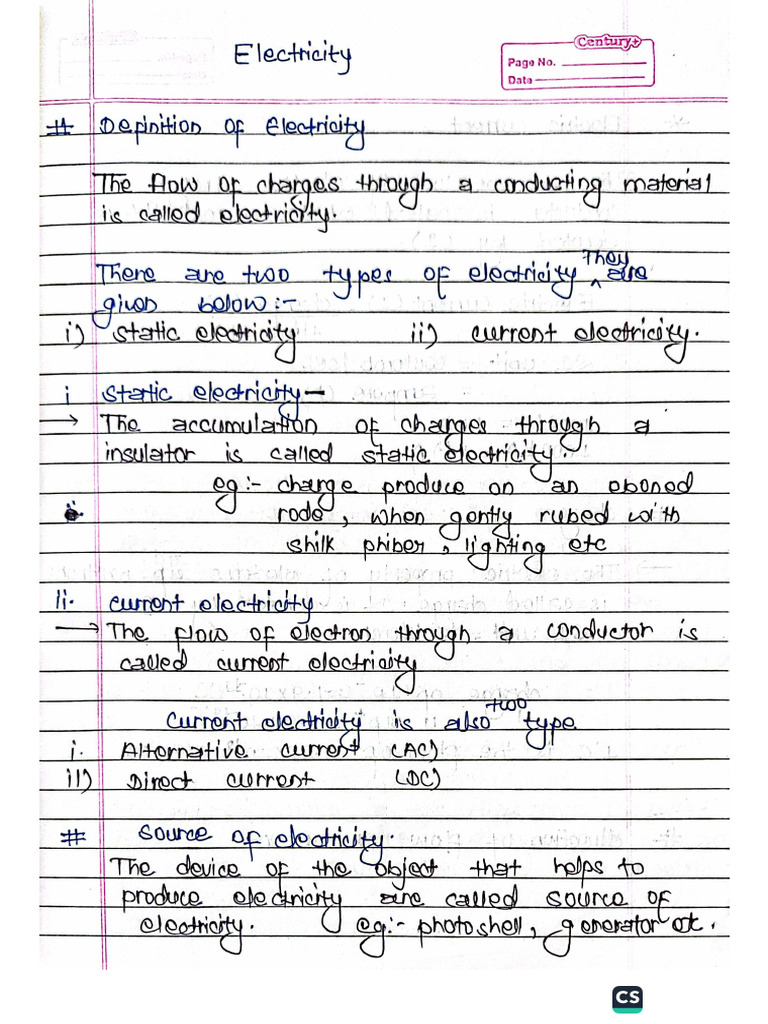 Electricity
Century+
Page No.
Date
# Definition of Electricity
The flow of charges through a conducting material
is called electricity.
There are two types of electricity They are
given below:-
i) static electricity ii) current electricity.
i static electricity-
→ The accumulation of charges through a
insulator is called static electricity.
eg:- charge produce on an eboned
ii. rode, when gently rubed with
shilk phiber, lighting etc
ii. current electricity
→ The flow of electron through a conductor is
called current electricity
current electricity is also two type
i. Alternative current (AC)
ii) Direct current (DC)
# source of electricity.
The device of the object that helps to
produce electricity are called source of
electricity. eg:- photoshell, generator etc.
CS